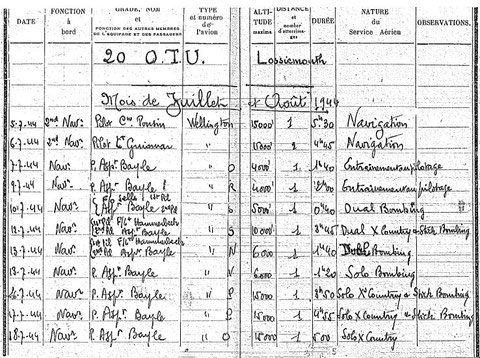 DATE FONCTION à bord GRADE, NOM et FONCTION DES AUTRES MEMBRES DE L'ÉQUIPAGE ET DES PASSAGERS TYPE et numéro de l'avion ALTITUDE maxima DISTANCE et nombre d'atterrissages DURÉE NATURE du Service Aérien OBSERVATIONS.
20 O.T.U. Lossiemouth
Mois de Juillet et Août 1944
5.7.44 2nd Nav. Pilot Cne Wellington 15000' 1 5h30 Navigation
6.7.44 2nd Nav. Pilot Lt Guimar " 15000 2 4h45 Navigation
7.7.44 Nav. P. Aspt Bayle " O 4000' 1 1h40 Entrainement au pilotage
9.7.44 Nav. P. Aspt Bayle " R 4000' 1 Entrainement au pilotage
10.7.44 Nav. F/O 1st Pil. P. Aspt Bayle 2nd Pil. " 5000' 1 0h40 Dual Bombing
12.7.44 Nav. 1st Pil F/Lt Hammerbeck P. Aspt Bayle " S 10.000 1 3h45 Dual X Country & Stick Bombing
13.7.44 Nav. 1st Pil F/Lt Hammerbeck P. Aspt Bayle " N 6.000 1 1h40 Bombing
13.7.44 Nav. P. Aspt Bayle " N 6.000 1 1h20 Solo Bombing
Nav. P. Aspt Bayle " P 15000 1 3h50 Solo X Country & Stick Bombing
Nav. P. Aspt Bayle " P 15000 1 4h55 Solo X Country & Stick Bombing
Nav. P. Aspt Bayle " O 15000 1 5 00 Solo X Country